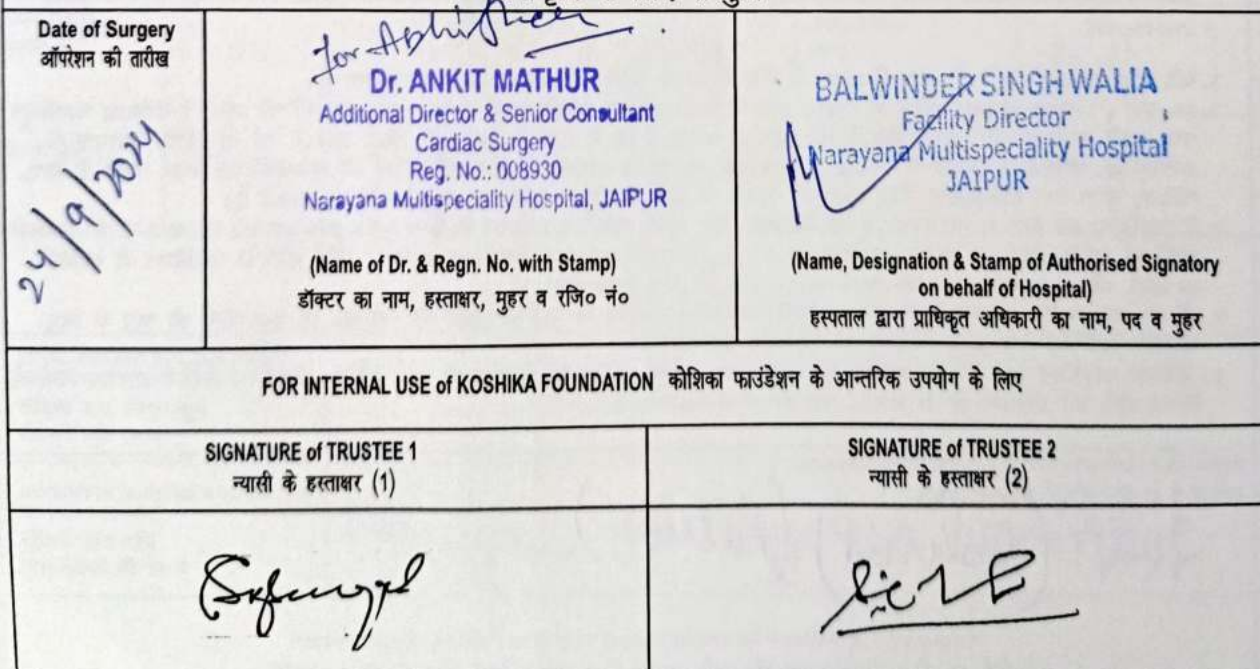 Date of Surgery
ऑपरेशन की तारीख
24/9/2024
for Abhishek
Dr. ANKIT MATHUR
Additional Director & Senior Consultant
Cardiac Surgery
Reg. No.: 008930
Narayana Multispeciality Hospital, JAIPUR
(Name of Dr. & Regn. No. with Stamp)
डॉक्टर का नाम, हस्ताक्षर, मुहर व रजि० नं०
BALWINDER SINGH WALIA
Facility Director
Narayana Multispeciality Hospital
JAIPUR
(Name, Designation & Stamp of Authorised Signatory
on behalf of Hospital)
हस्पताल द्वारा प्राधिकृत अधिकारी का नाम, पद व मुहर
FOR INTERNAL USE of KOSHIKA FOUNDATION कोशिका फाउंडेशन के आन्तरिक उपयोग के लिए
SIGNATURE of TRUSTEE 1
न्यासी के हस्ताक्षर (1)
SIGNATURE of TRUSTEE 2
न्यासी के हस्ताक्षर (2)